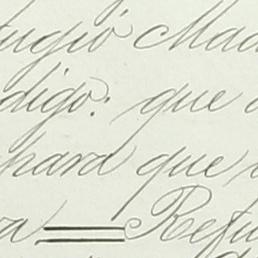 fugió Mad
digo: que
para que
ra = Refu